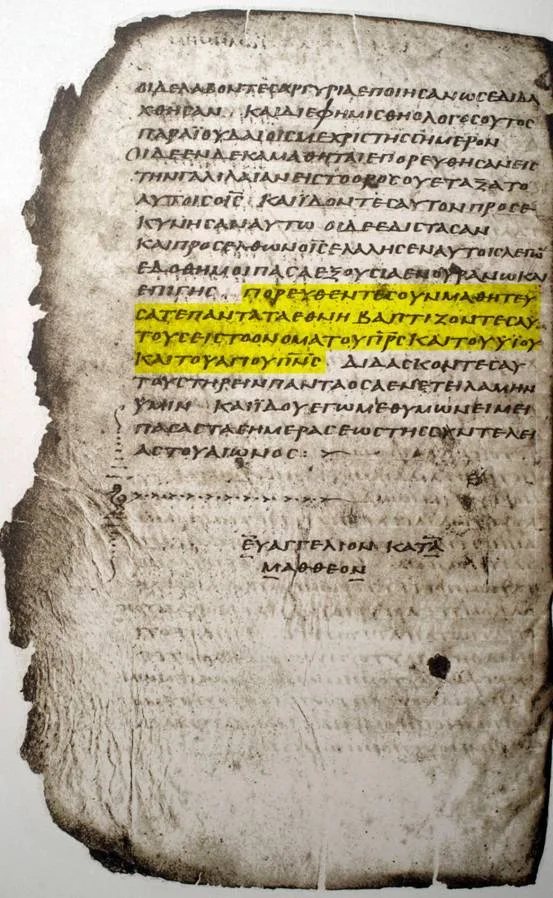 ΟΙΔΕΛΑΒΟΝΤΕϹΑΡΓΥΡΙΑΕΠΟΙΗϹΑΝΩϹΕΔΙΔΑ
ΧΘΗϹΑΝ ΚΑΙΔΙΕΦΗΜΙϹΘΗΟΛΟΓΟϹΟΥΤΟϹ
ΠΑΡΑΪΟΥΔΑΙΟΙϹΜΕΧΡΙϹΤΗϹϹΗΜΕΡΟΝ
ΟΙΔΕΕΝΔΕΚΑΜΑΘΗΤΑΙΕΠΟΡΕΥΘΗϹΑΝΕΙϹ
ΤΗΝΓΑΛΙΛΑΙΑΝΕΙϹΤΟΟΡΟϹΟΥΕΤΑΞΑΤΟ
ΑΥΤΟΙϹΟΙ̅Ϲ̅ ΚΑΙΪΔΟΝΤΕϹΑΥΤΟΝΠΡΟϹΕ
ΚΥΝΗϹΑΝΑΥΤΩ ΟΙΔΕΕΔΙϹΤΑϹΑΝ
ΚΑΙΠΡΟϹΕΛΘΩΝΟΙ̅Ϲ̅ΕΛΑΛΗϹΕΝΑΥΤΟΙϹΛΕΓΩ̅
ΕΔΟΘΗΜΟΙΠΑϹΑΕΞΟΥϹΙΑΕΝΟΥΡΑΝΩΚΑΙ
ΕΠΙΓΗϹ ΠΟΡΕΥΘΕΝΤΕϹΟΥΝΜΑΘΗΤΕΥ
ϹΑΤΕΠΑΝΤΑΤΑΕΘΝΗ ΒΑΠΤΙΖΟΝΤΕϹΑΥ
ΤΟΥϹΕΙϹΤΟΟΝΟΜΑΤΟΥΠ̅Ρ̅Ϲ̅ΚΑΙΤΟΥΫΙΟΥ
ΚΑΙΤΟΥΑΓΙΟΥΠ̅Ν̅Ϲ̅ ΔΙΔΑϹΚΟΝΤΕϹΑΥ
ΤΟΥϹΤΗΡΕΙΝΠΑΝΤΑΟϹΑΕΝΕΤΕΙΛΑΜΗΝ
ΫΜΙΝ ΚΑΙΪΔΟΥΕΓΩΜΕΘΥΜΩΝΕΙΜΕΙ
ΠΑϹΑϹΤΑϹΗΜΕΡΑϹΕΩϹΤΗϹϹΥΝΤΕΛΕΙ
ΑϹΤΟΥΑΙΩΝΟϹ:
ΕΥΑΓΓΕΛΙΟΝ ΚΑΤΑ
ΜΑΘΘΕΟΝ